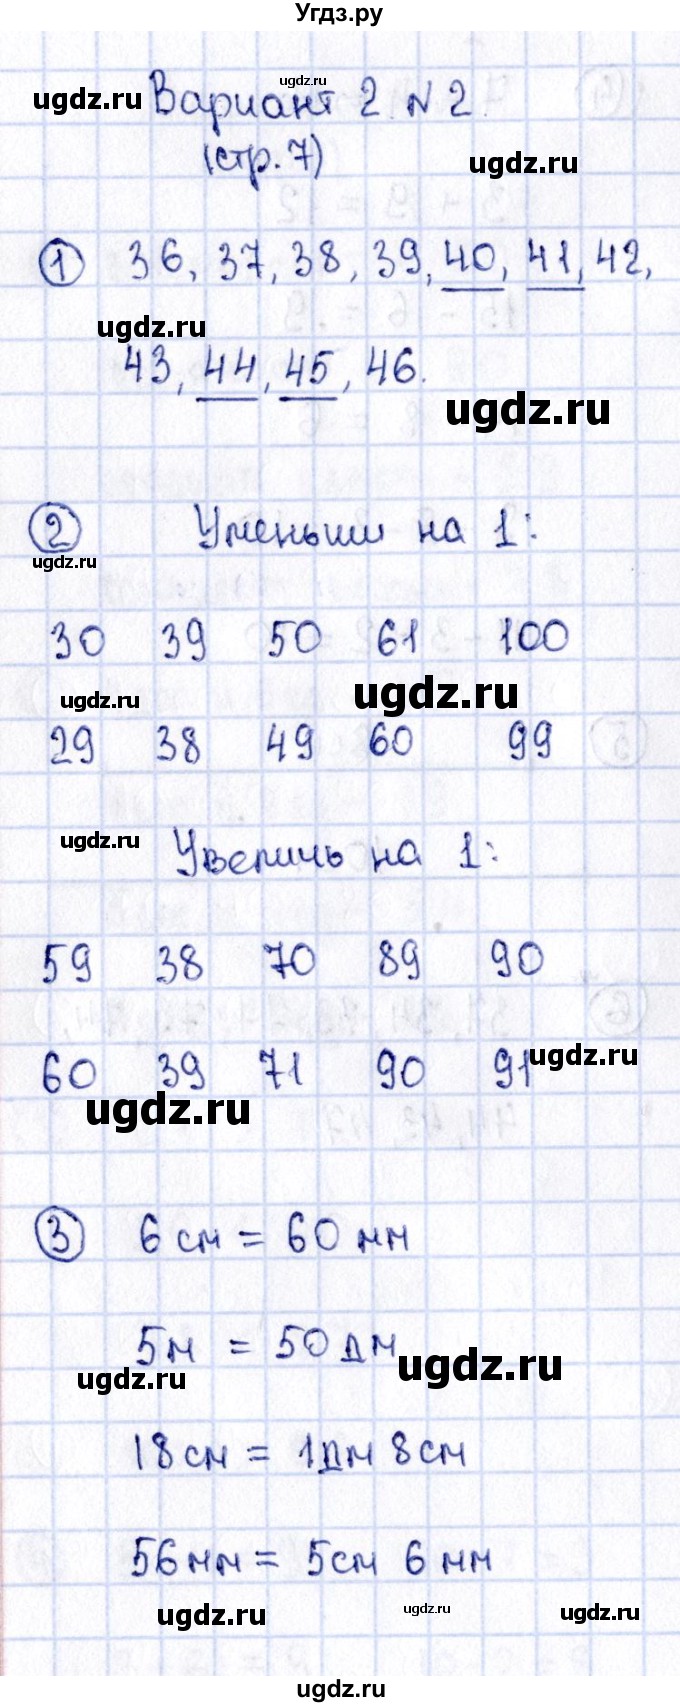 Угдз.ру
ugdz.ru
ugdz.ru
Вариант 2 №2.
(стр. 7)
ugdz.ru
① 36, 37, 38, 39, 40, 41, 42,
ugdz.ru
43, 44, 45, 46.
ugdz.ru
② Уменьши на 1:
ugdz.ru
30 39 50 61 100
ugdz.ru ugdz.ru
29 38 49 60 99
ugdz.ru
Увеличь на 1:
59 38 70 89 90
60 39 71 90 91
ugdz.ru
ugdz.ru
③ 6 см = 60 мм
5м = 50 дм
ugdz.ru
ugdz.ru
18 см = 1дм 8см
56 мм = 5см 6 мм
ugdz.ru ugdz.ru ugdz.ru
ugdz.ru